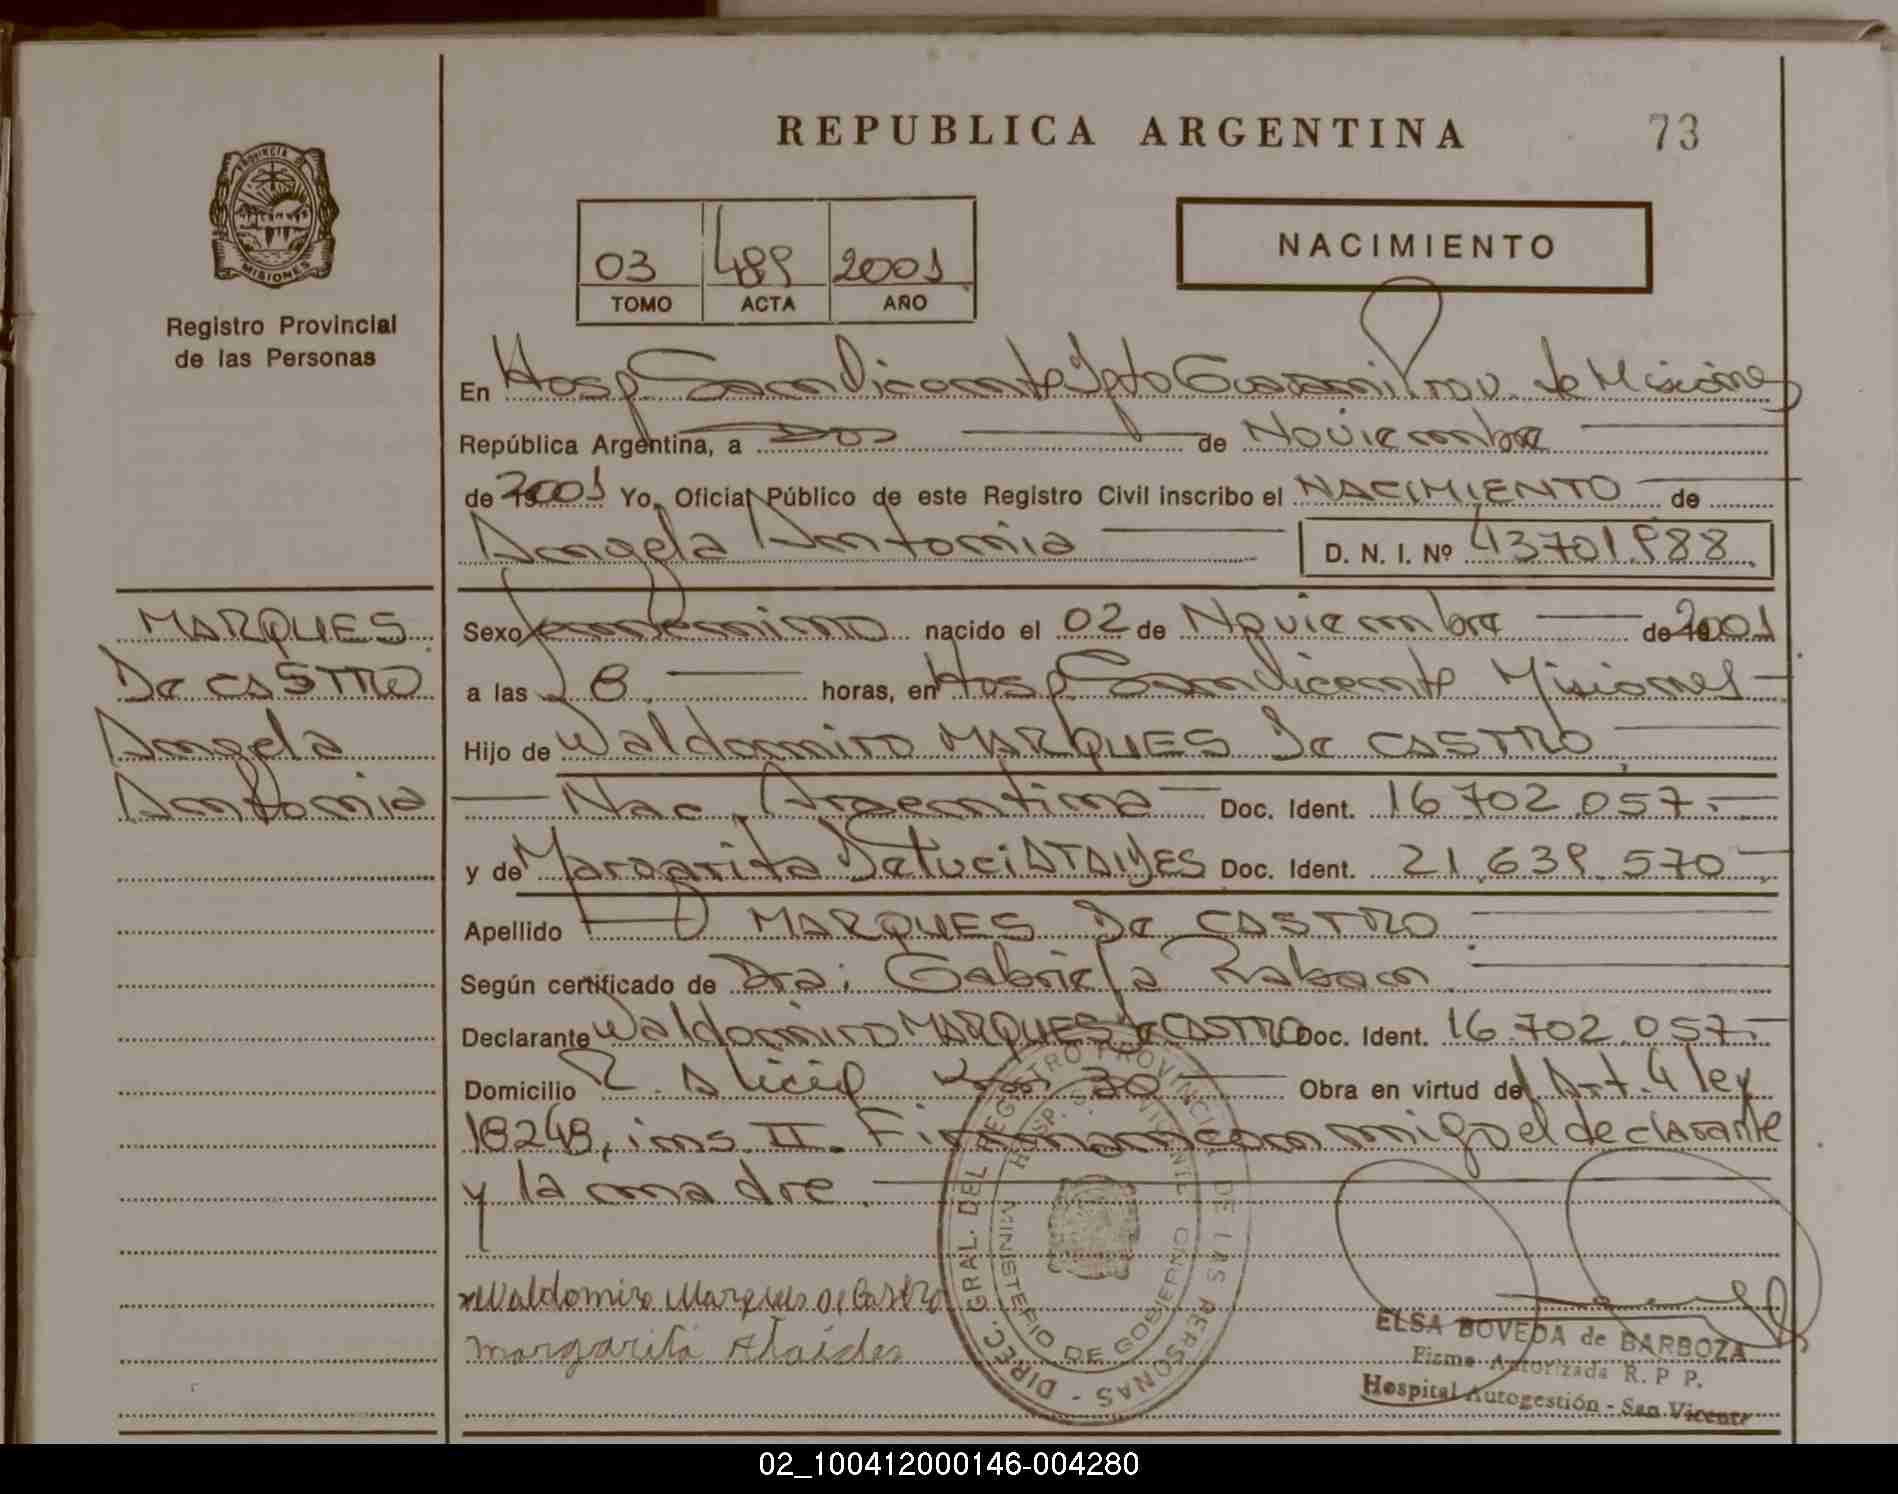 REPUBLICA ARGENTINA
73
PROVINCIA DE
MISIONES
Registro Provincial
de las Personas
03 489 2001
TOMO ACTA AÑO
NACIMIENTO
En Hosp San Vicente Dpto Guarani Prov. de Misiones
República Argentina, a Dos de Noviembre
de 2001 Yo, Oficial Público de este Registro Civil inscribo el NACIMIENTO de
Angela Antonia D. N. I. Nº 43701.988
MARQUES
De CASTRO
Angela
Antonia
Sexo femenino nacido el 02 de Noviembre de 2001
a las 8 horas, en Hosp San Vicente Misiones
Hijo de Waldomiro MARQUES De CASTRO
Nac. Argentina Doc. Ident. 16.702.057.-
y de Margarita ATAIDES Doc. Ident. 21.639.570
Apellido MARQUES De CASTRO
Según certificado de Dra: Gabriela
Declarante Waldomiro MARQUES De CASTRO Doc. Ident. 16.702.057.-
Domicilio Km 30 Obra en virtud del Art. 4 ley
18248, ins. II. Firman conmigo el declarante
y la madre.
Waldomiro Marques De Castro
Margarita Ataides
DIREC. GRAL. DEL REGISTRO PROVINCIAL DE LAS PERSONAS -
HOSP. S. VICENTE
MINISTERIO DE GOBIERNO
ELSA BOVEDA de BARBOZA
Firma Autorizada R. P P.
Hospital Autogestión - San Vicente
02_100412000146-004280